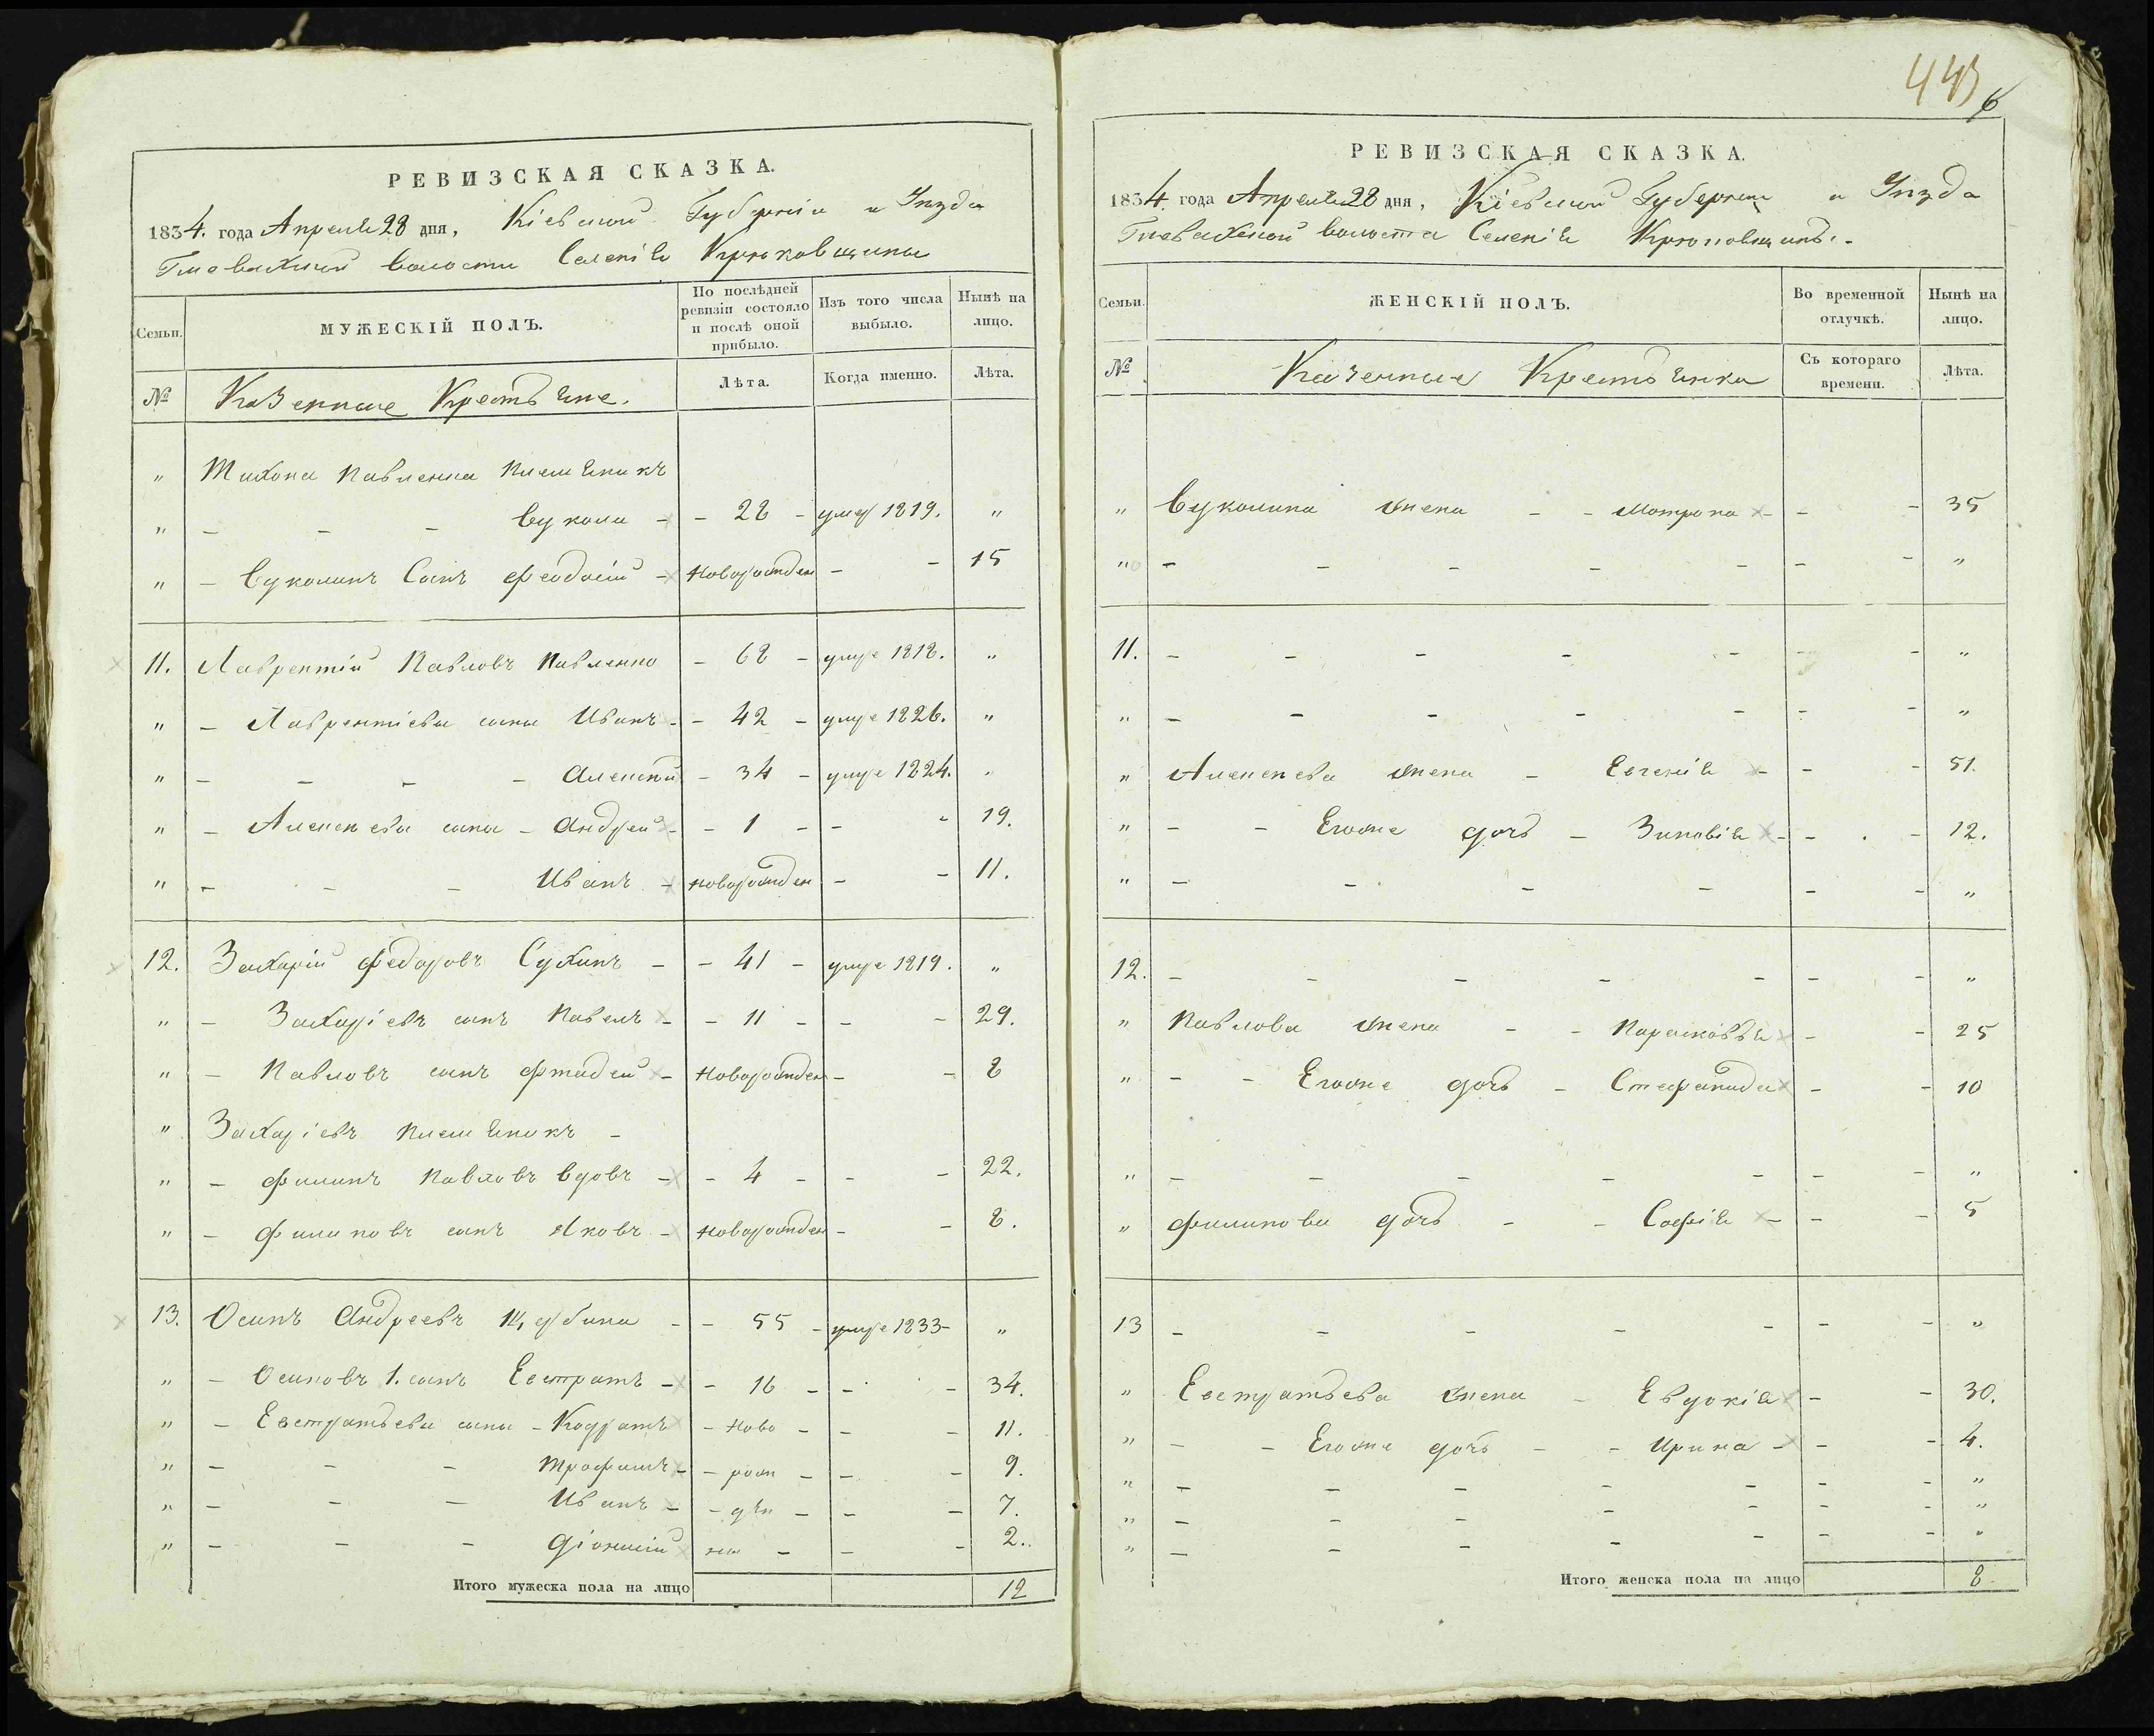 РЕВИЗСКАЯ СКАЗКА.
1834. года Апреля 28 дня, Кіевской Губерніи и Уѣзда
волости Селенія Крюковщины
Семьи. МУЖЕСКІЙ ПОЛЪ. По послѣдней ревизіи состояло и послѣ оной прибыло. Изъ того числа выбыло. Нынѣ на лицо.
№ Казенные Крестьяне. Лѣта. Когда именно. Лѣта.
" Тихона Павленка племяникъ
" - - - Вукола - - 28 - умер 1819. "
" - Вуколинъ Сынъ Феодосій - новорожден - - 15
11. Лаврентій Павловъ Павленко - 68 - умре 1818. "
" - Лаврентіевы сыны Иванъ - - 42 - умре 1826. "
" - - - - Алексѣй - 34 - умре 1824. "
" - Алексѣевы сыны - Андрей - - 1 - - - 19.
" - - - Иванъ - новорожден - - 11.
12. Захарій Федоровъ Сухинъ - - 41 - умре 1819. "
" - Захаріевъ сынъ Павелъ - - 11 - - - 29.
" - Павловъ сынъ Фтадей - новорожден - - 8
" Захаріевъ племяникъ -
" - Филипъ Павловъ вдовъ - - 4 - - - 22.
" - Филиповъ сынъ Яковъ - новорожден - - 8.
13. Осипъ Андреевъ - - 55 - умре 1833 - "
" - Осиповъ 1. сынъ Евстратъ - - 16 - - - 34.
" - Евстратьевы сыны - Кодратъ - ново - - - 11.
" - - - Трофимъ - - рож - - - 9.
" - - - Иванъ - - дѣн - - - 7.
" - - - Діонисій - - - 2.
Итого мужеска пола на лицо 12
443
6
РЕВИЗСКАЯ СКАЗКА.
1834. года Апреля 28 дня, Кіевской Губерніи и Уѣзда
волости Селенія Крюковщины.-
Семьи. ЖЕНСКІЙ ПОЛЪ. Во временной отлучкѣ. Нынѣ на лицо.
№ Казенные Крестьянки Съ котораго времени. Лѣта.
" Вуколина жена - - Мотрона - - - 35
" - - - - - - - "
11. - - - - - - - "
" - - - - - - - "
" Алексѣева жена - Евгенія - - - 51.
" - - Егоже дочь - Зиновія - - - 12.
" - - - - - - "
12. - - - - - - - "
" Павлова жена - - Парасковья - - 25
" - - Егоже дочь - Стефанида - - 10
" - - - - - - - "
" Филипова дочь - - Софія - - - 5
13 - - - - - - - "
" Евстратьева жена - Евдокія - - 30.
" - - Егоже дочь - - Ирина - - - 4.
" - - - - - - - "
" - - - - - - - "
" - - - - - - - "
Итого женска пола на лицо 8.